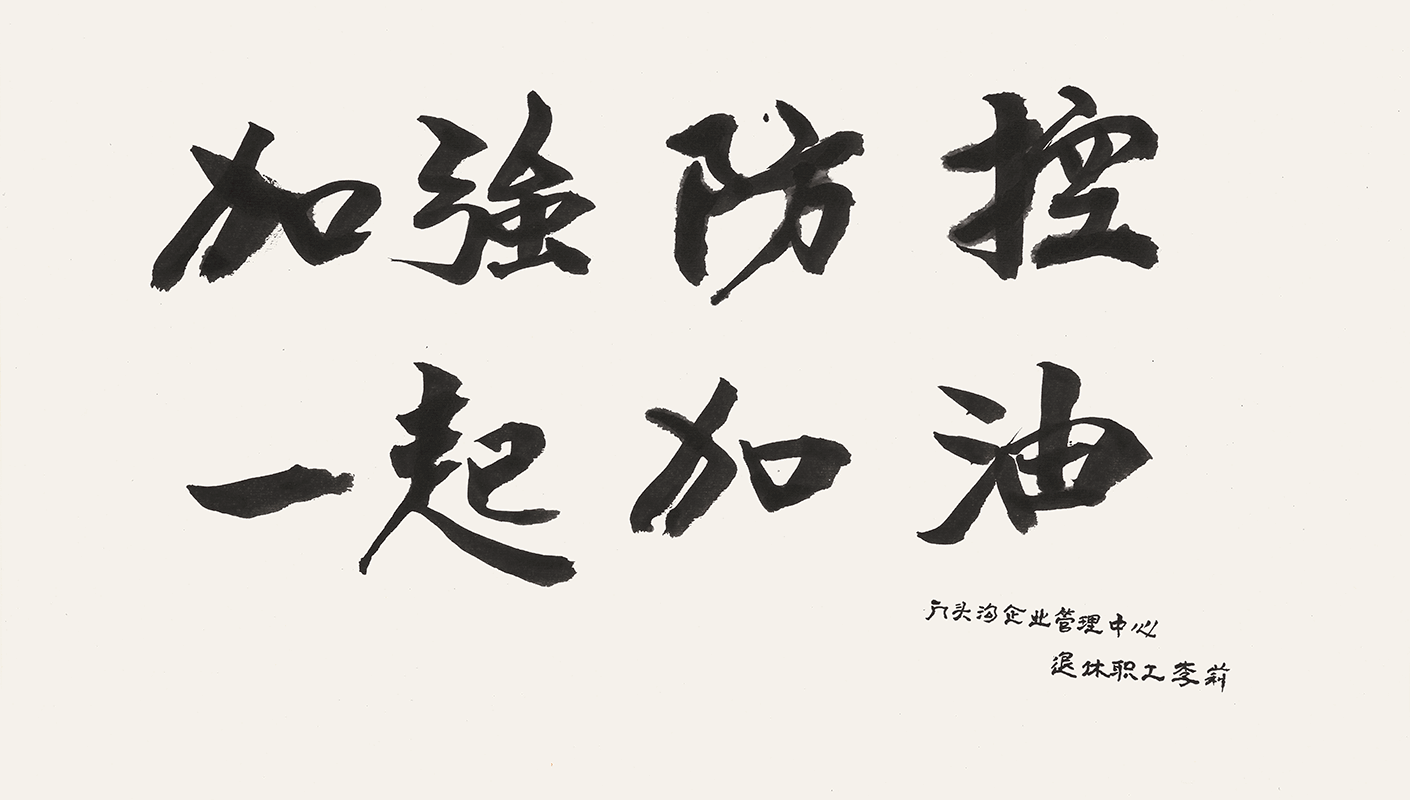 加強防控
一起加油
门头沟企业管理中心
退休职工李莉